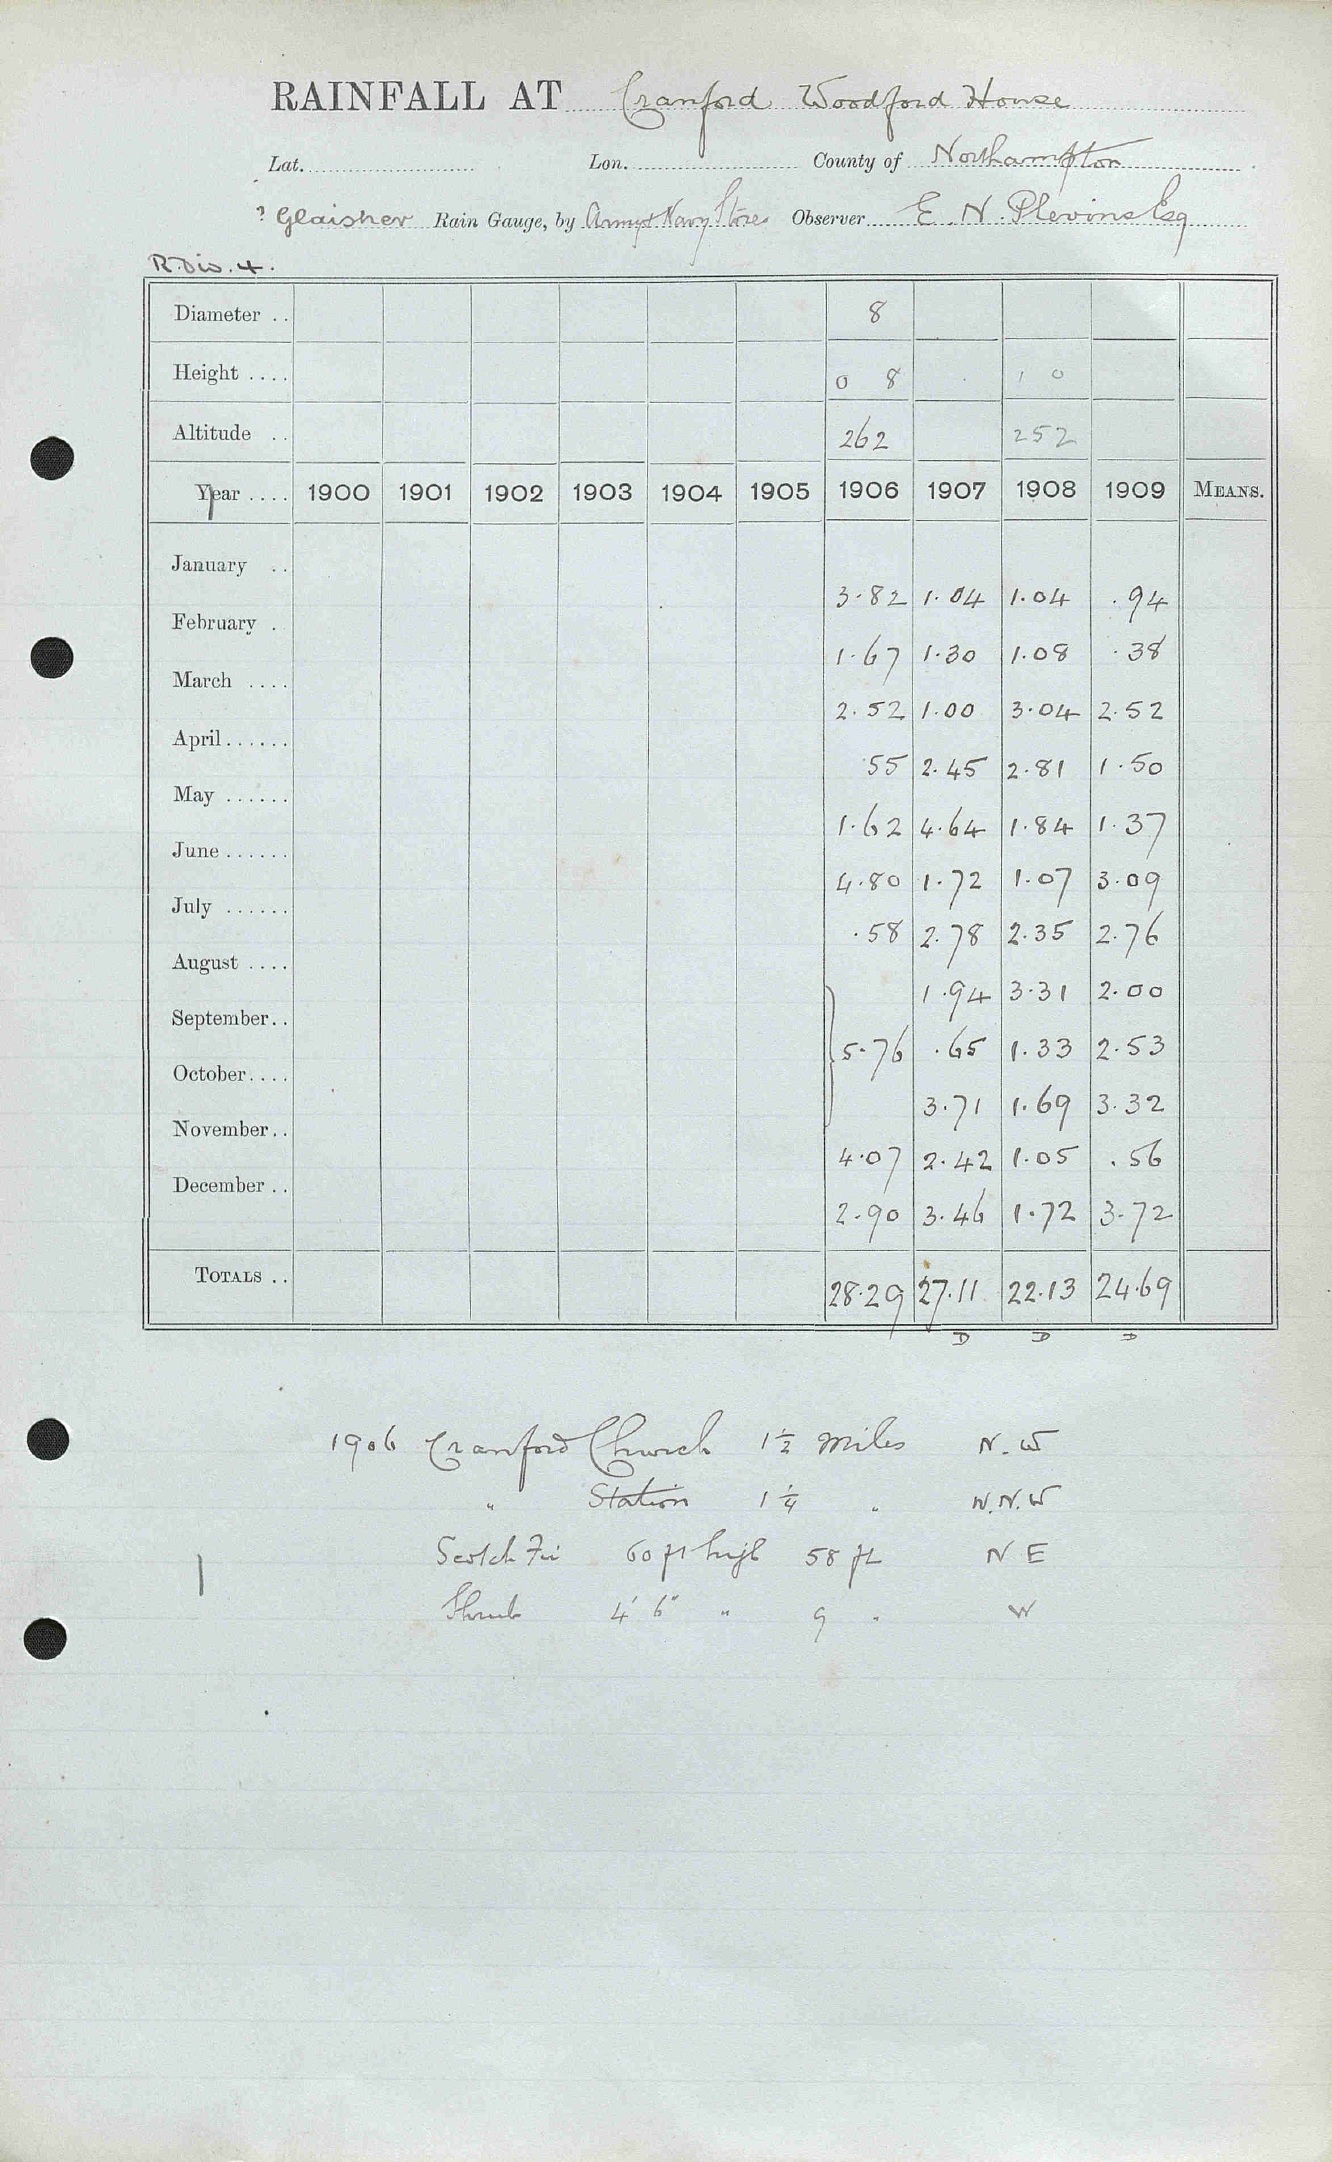 RAINFALL AT Cranford Woodford House
Lat. Lon. County of Northampton
? Glaisher Rain Gauge, by Army & Navy Stores Observer E. N. Plevins Esq
R. Div. 4.
Diameter .. 8
Height .... 0 8 1 0
Altitude .. 262 252
Year .... 1900 1901 1902 1903 1904 1905 1906 1907 1908 1909 MEANS.
January .. 3.82 1.04 1.04 .94
February . 1.67 1.30 1.08 .38
March .... 2.52 1.00 3.04 2.52
April ...... .55 2.45 2.81 1.50
May ...... 1.62 4.64 1.84 1.37
June ...... 4.80 1.72 1.07 3.09
July ...... .58 2.78 2.35 2.76
August .... 1.94 3.31 2.00
September .. 5.76 .65 1.33 2.53
October .... 3.71 1.69 3.32
November .. 4.07 2.42 1.05 .56
December .. 2.90 3.46 1.72 3.72
TOTALS .. 28.29 27.11 22.13 24.69
D D D
1906 Cranford Church 1½ miles N.W
" Station 1¼ " W.N.W
Scotch Fir 60 ft high 58 ft N E
Shrub 4' 6" " 9 " W